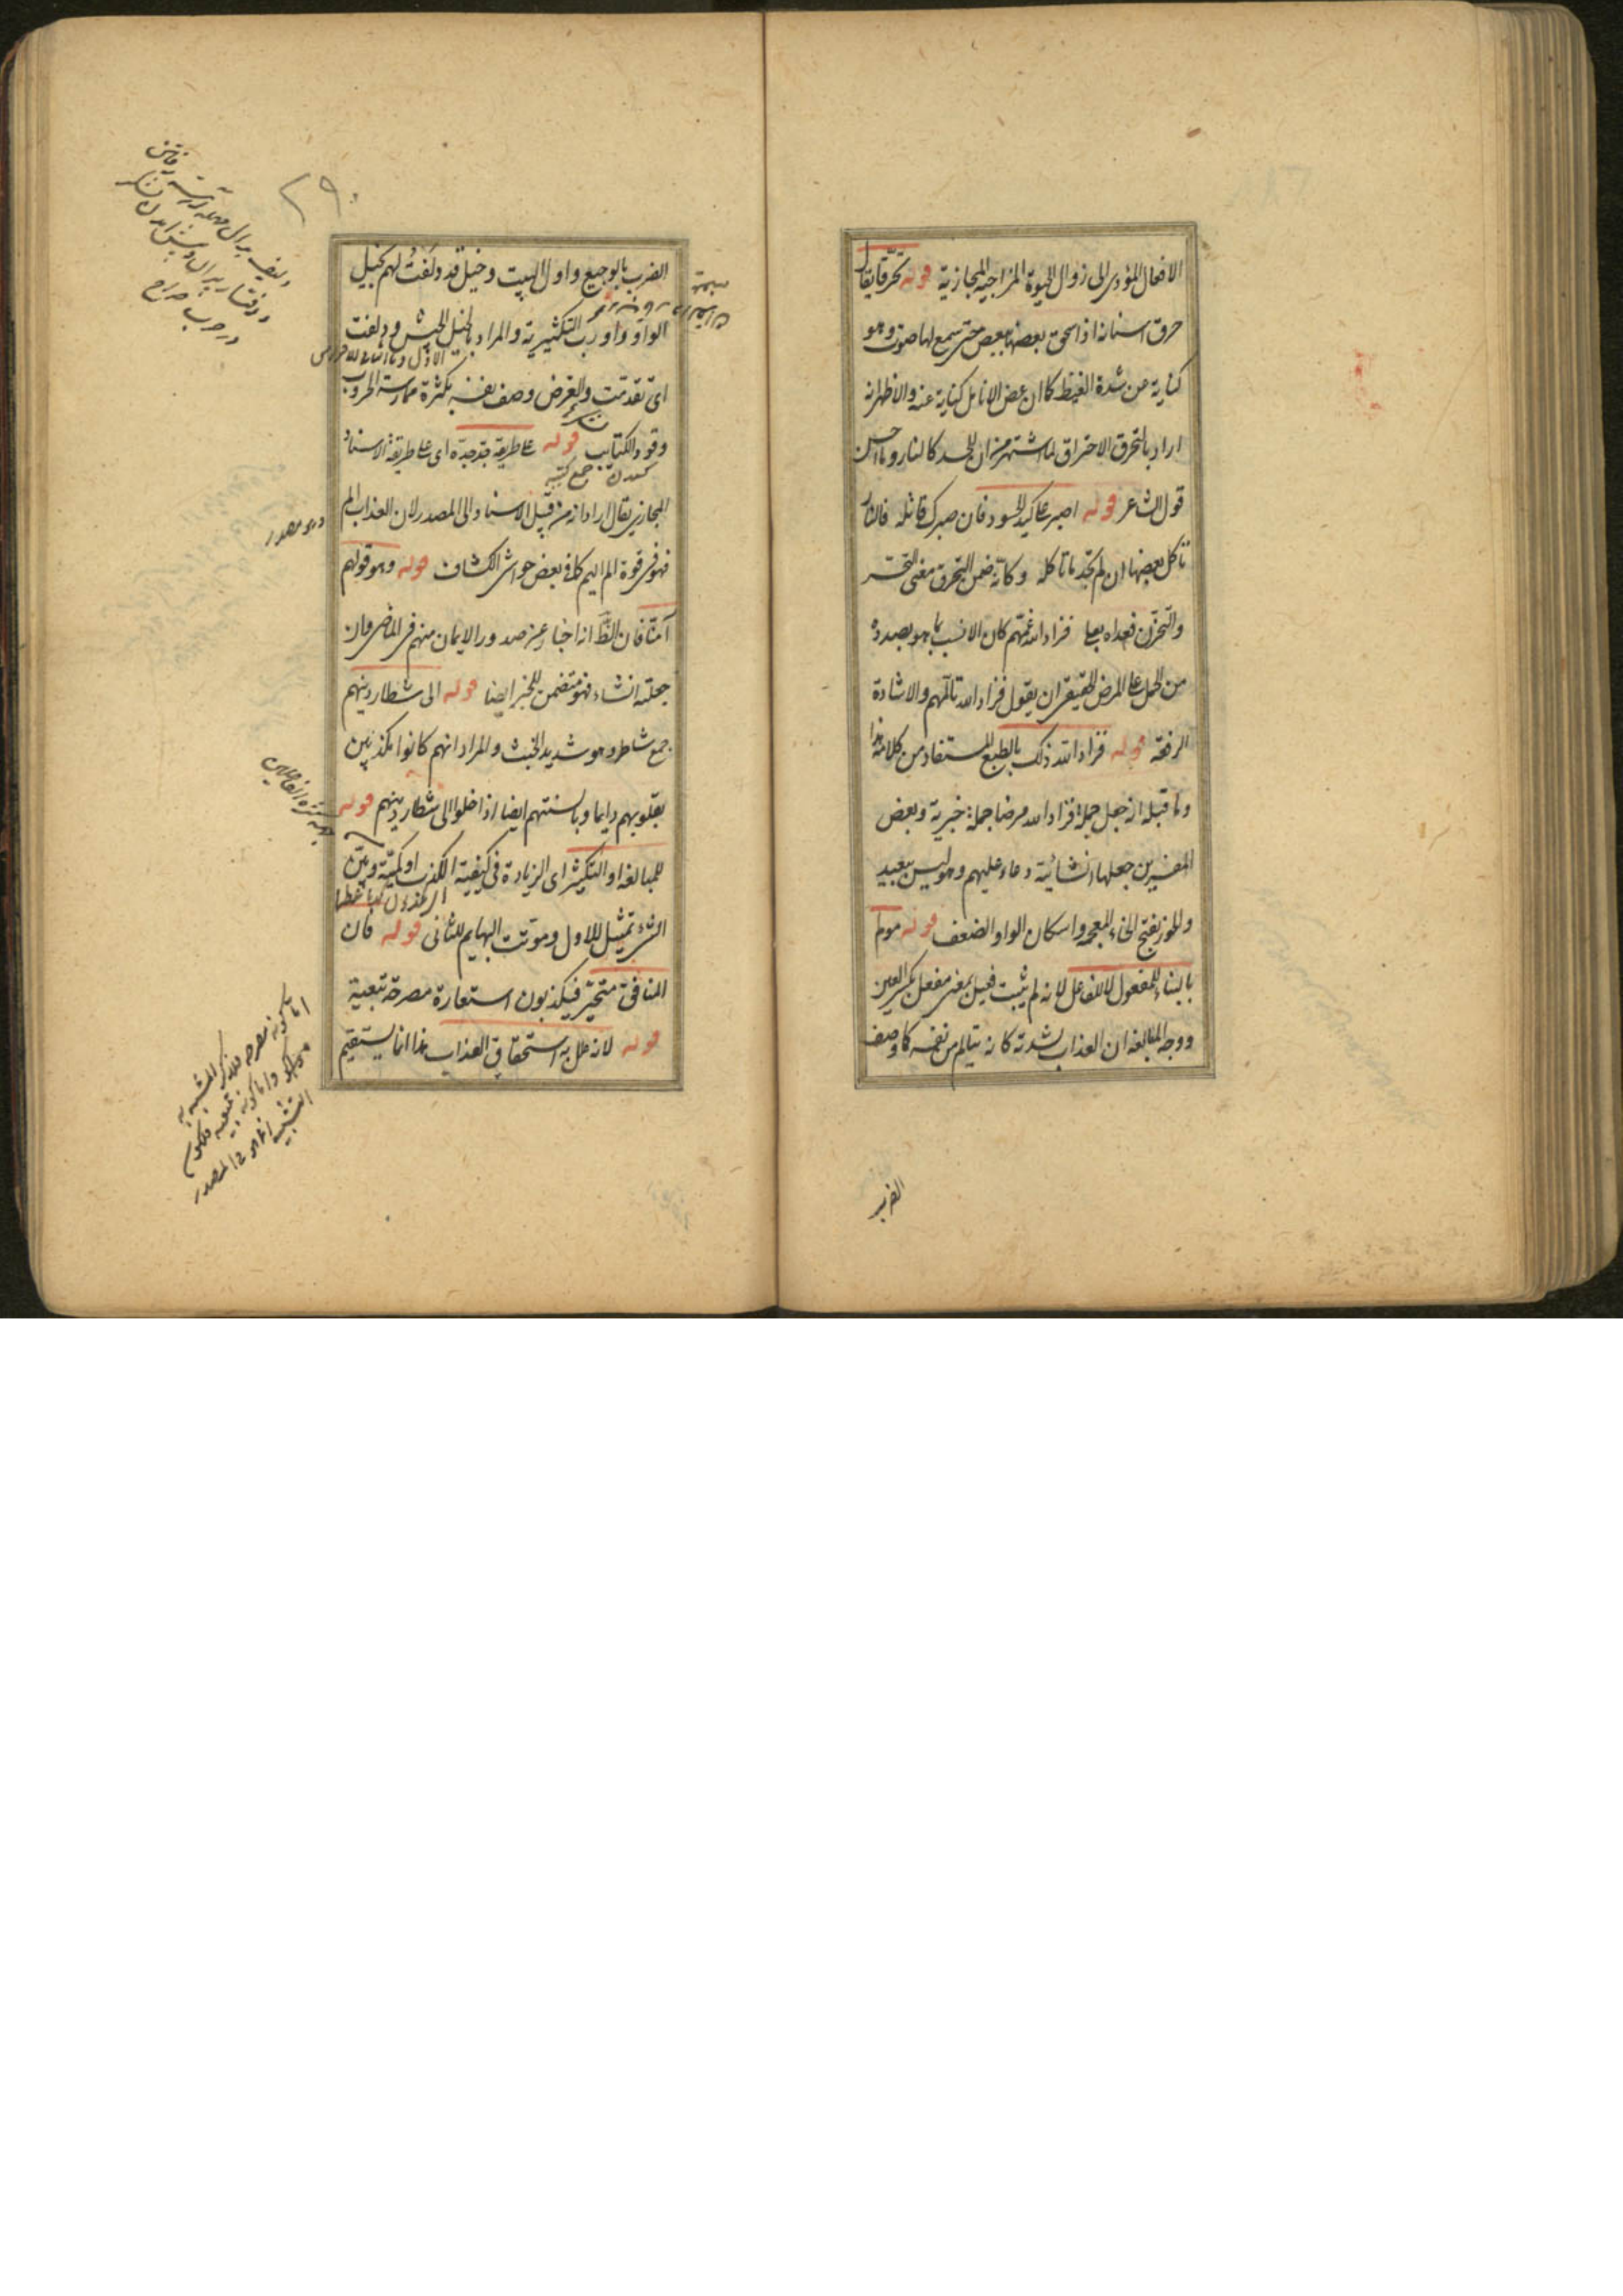 الافعال المؤدى الى زوال الحيوة المزاجية المجازية قوله تحرّقا يقال
حرق اسنانه اذا سحق بعضها ببعض حتى سمع لها صوت وهو
كناية عن شدة الغيظ كما ان عض الانامل كناية عنه والاظهر انه
اراد بالتحرق الاحتراق لما اشتهر من ان الحسد كالنار وما احسن
قول الشاعر قوله اصبر على كيد الحسود فان صبرك قاتله فالنار
تأكل بعضها ان لم تجد ما تأكله وكانه ضمن التحرق معنى التحسر
والتحزن فعداه بعلى فزاد الله غمهم كان الانسب بما هو بصدده
من الحمل على المرض الحقيقى ان يقول فزاد الله تألمهم والاشادة
الرفعة قوله فزاد الله ذلك بالطبع المستفاد من كلامه هذا
وما قبله انه جعل جملة فزاد الله مرضا جملة خبرية وبعض
المفسرين جعلها انشائية دعاء عليهم وهو ليس ببعيد
والخور بفتح الخاء المعجمة واسكان الواو الضعف قوله مولم
بالبناء للمفعول لا للفاعل لانه لم يثبت فعيل بمعنى مفعل بكسر العين
ووجه المبالغة ان العذاب لشدته كانه يتالم من نفسه كما وصف
الضرب
٢٩٠
الضرب بالوجيع واول البيت وخيل قد دلفت لهم بخيل
الواو واو رب التكثيرية والمراد بالخيل الجيش ودلفت
اى تقدمت والغرض وصف نفسه بكثرة ممارسة الحروب
وقود الكتايب قوله على طريقة جد جده اى على طريقة الاسناد
جمع كتيبة
المجازى يقال اراد انه من قبيل الاسناد الى المصدر لان العذاب الم
وهو مصدر
فهو فى قوة الم اليم كما فى بعض حواشى الكشاف قوله وهو قولهم
آمنا فان الظ انه اخبار عن صدور الايمان منهم فى الماضى وان
جعلته انشاء فهو متضمن للخبر ايضا قوله الى شطار دينهم
جمع شاطر وهو شديد الخبث والمراد انهم كانوا مكذبين
بقلوبهم دايما وبالسنتهم ايضا اذا خلوا الى شطار دينهم قوله
للمبالغة او التكثير اى الزيادة فى كيفية الكذب او كميته وبين
الشئ تمثيل للاول وموتت البهايم للثانى قوله فان
المنافق متحير فيكذبون استعارة مصرحة تبعية
قوله لانه علل به استحقاق العذاب هذا انما يستقيم
اما كونه مصرحة فلذكر المشبه به
التشبيه انما هو فى المصدر